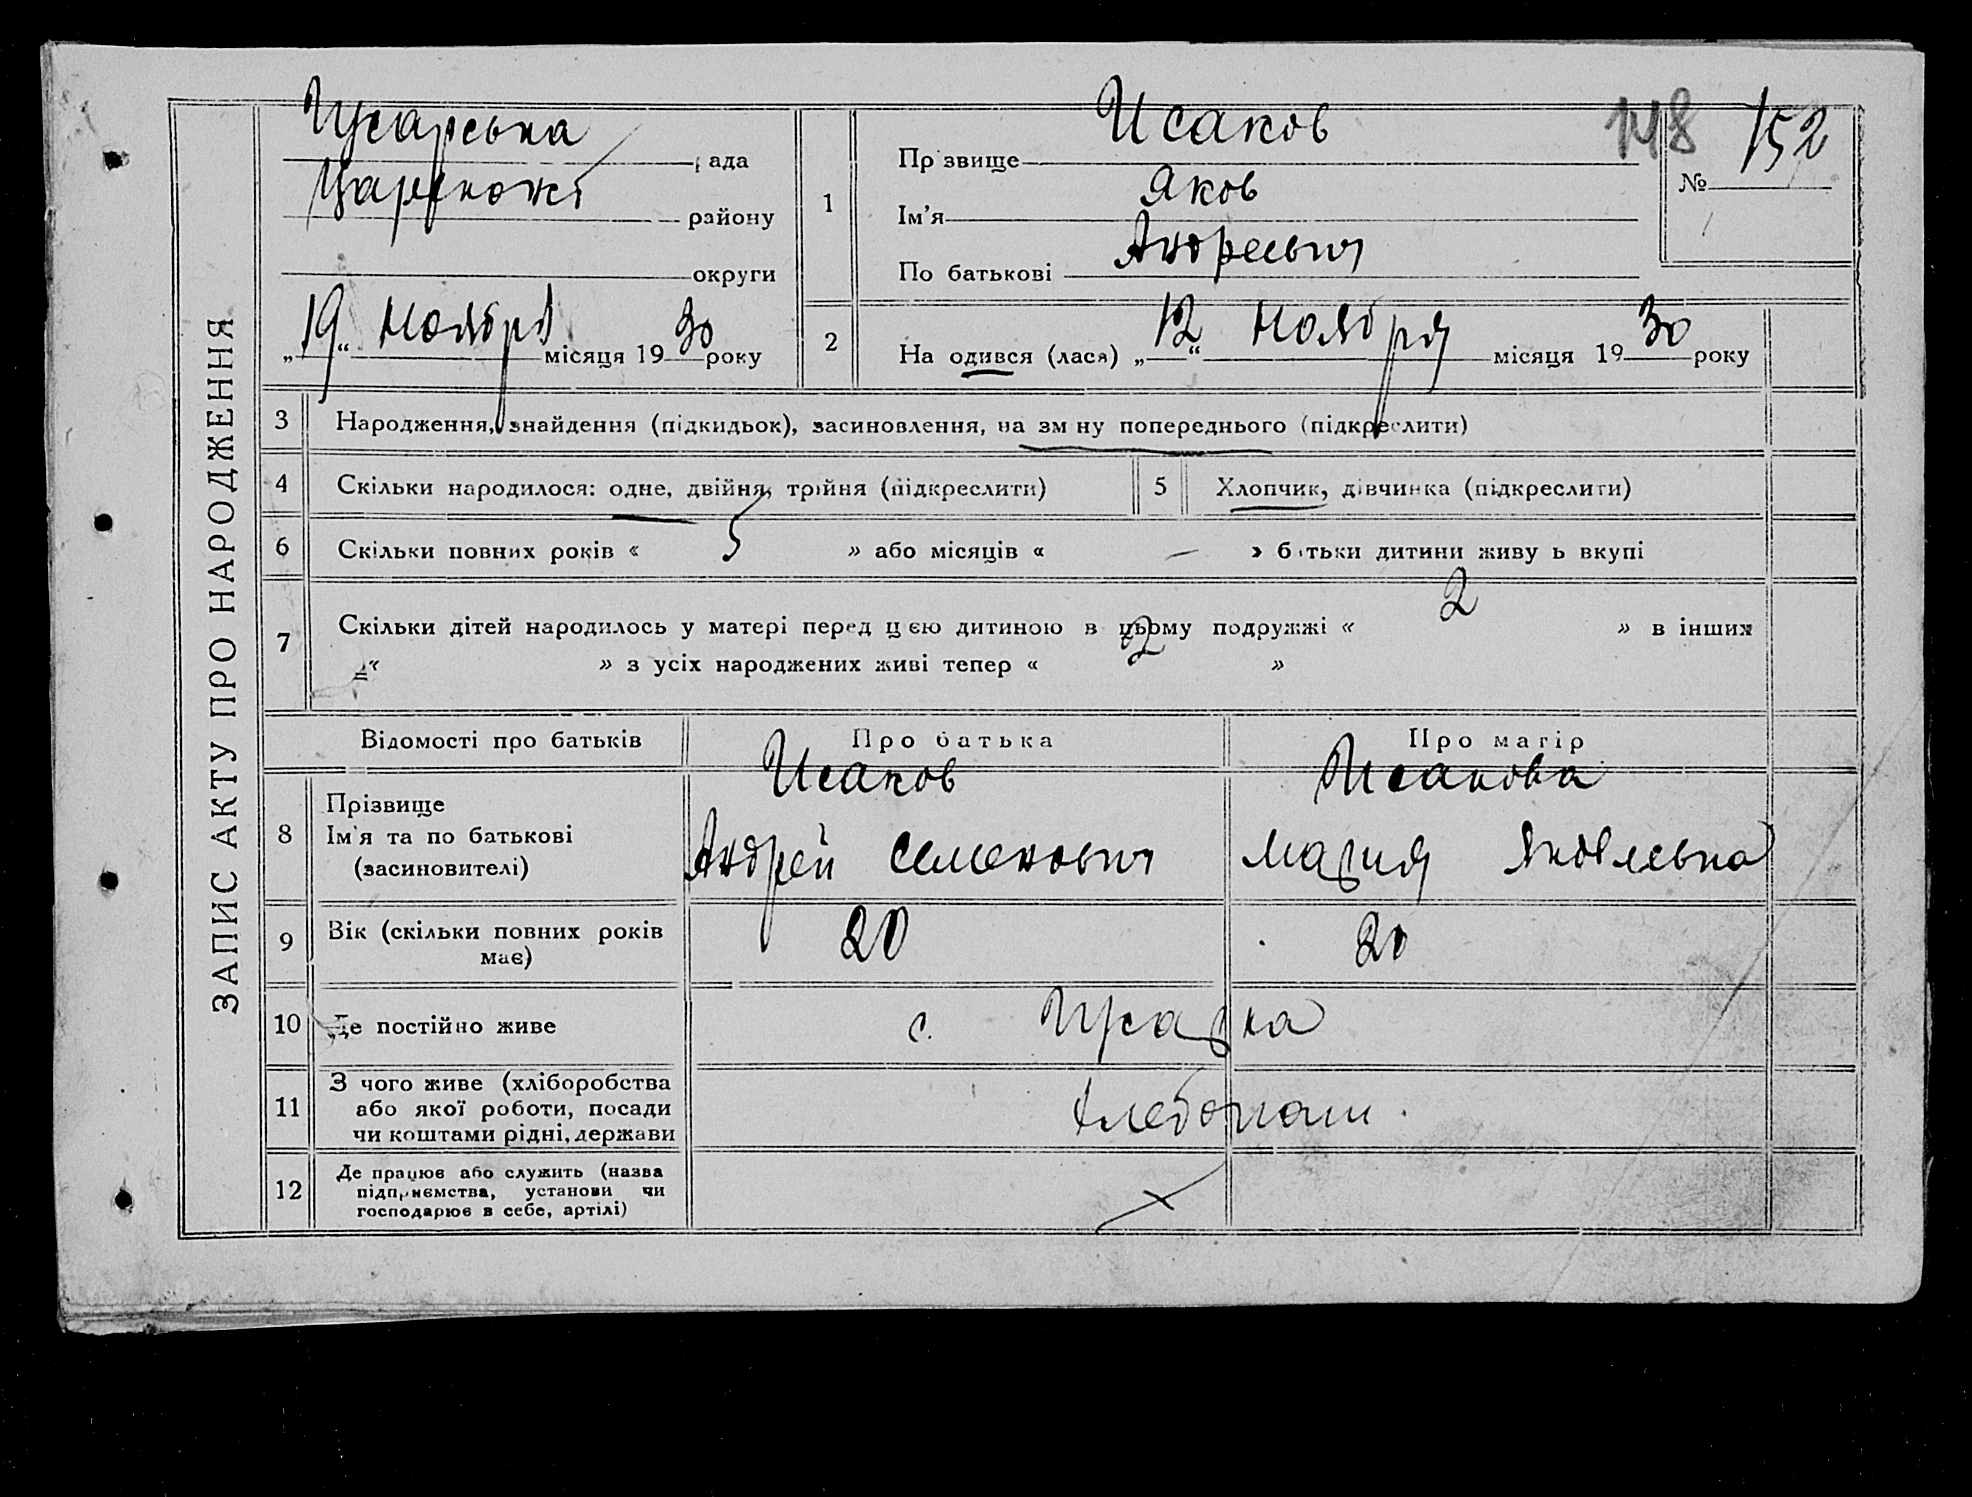 ЗАПИС АКТУ ПРО НАРОДЖЕННЯ
рада
району
округи
„19“ Ноября місяця 1930 року
148
№ 152
1
Прізвище Исаков
Ім'я Яков
По батькові Андреевич
2
На одився (лася) „12“ Ноября місяця 1930 року
3 Народження, знайдення (підкидьок), засиновлення, на зм ну попереднього (підкреслити)
4 Скільки народилося: одне, двійня, трійня (підкреслити)
5 Хлопчик, дівчинка (підкреслити)
6 Скільки повних років « 5 » або місяців « — » б тьки дитини живу ь вкупі
7 Скільки дітей народилось у матері перед цією дитиною в цьому подружжі « 2 » в інших
„=“ » з усіх народжених живі тепер « 2 »
Відомості про батьків Про батька Про матір
8 Прізвище Исаков Исакова
Ім'я та по батькові Андрей Семенович Мария Яковлевна
(засиновителі)
9 Вік (скільки повних років 20 20
має)
10 Де постійно живе с.
11 З чого живе (хліборобства
або якої роботи, посади Хлебопаш.
чи коштами рідні, держави
12 Де працює або служить (назва
підприємства, установи чи
господарює в себе, артілі)